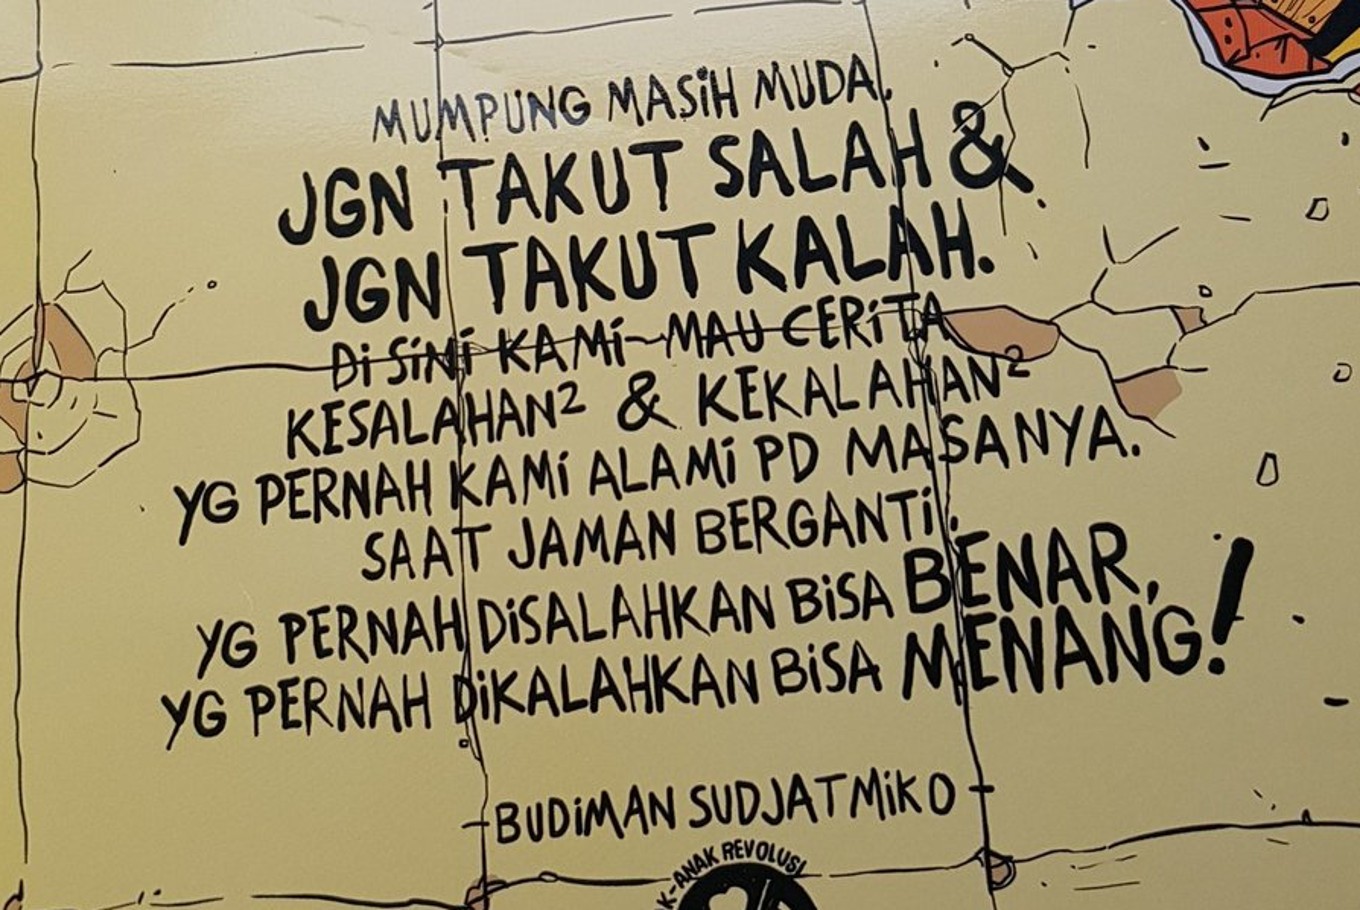 MUMPUNG MASiH MUDA,
JGN TAKUT SALAH &
JGN TAKUT KALAH.
Di SiNi KAMi MAU CERiTA
KESALAHAN² & KEKALAHAN²
YG PERNAH KAMi ALAMi PD MASANYA.
SAAT JAMAN BERGANTi,
YG PERNAH DiSALAHKAN BiSA BENAR,
YG PERNAH DiKALAHKAN BiSA MENANG!
-BUDiMAN SUDJATMiKO-
K-ANAK REVOLUSI